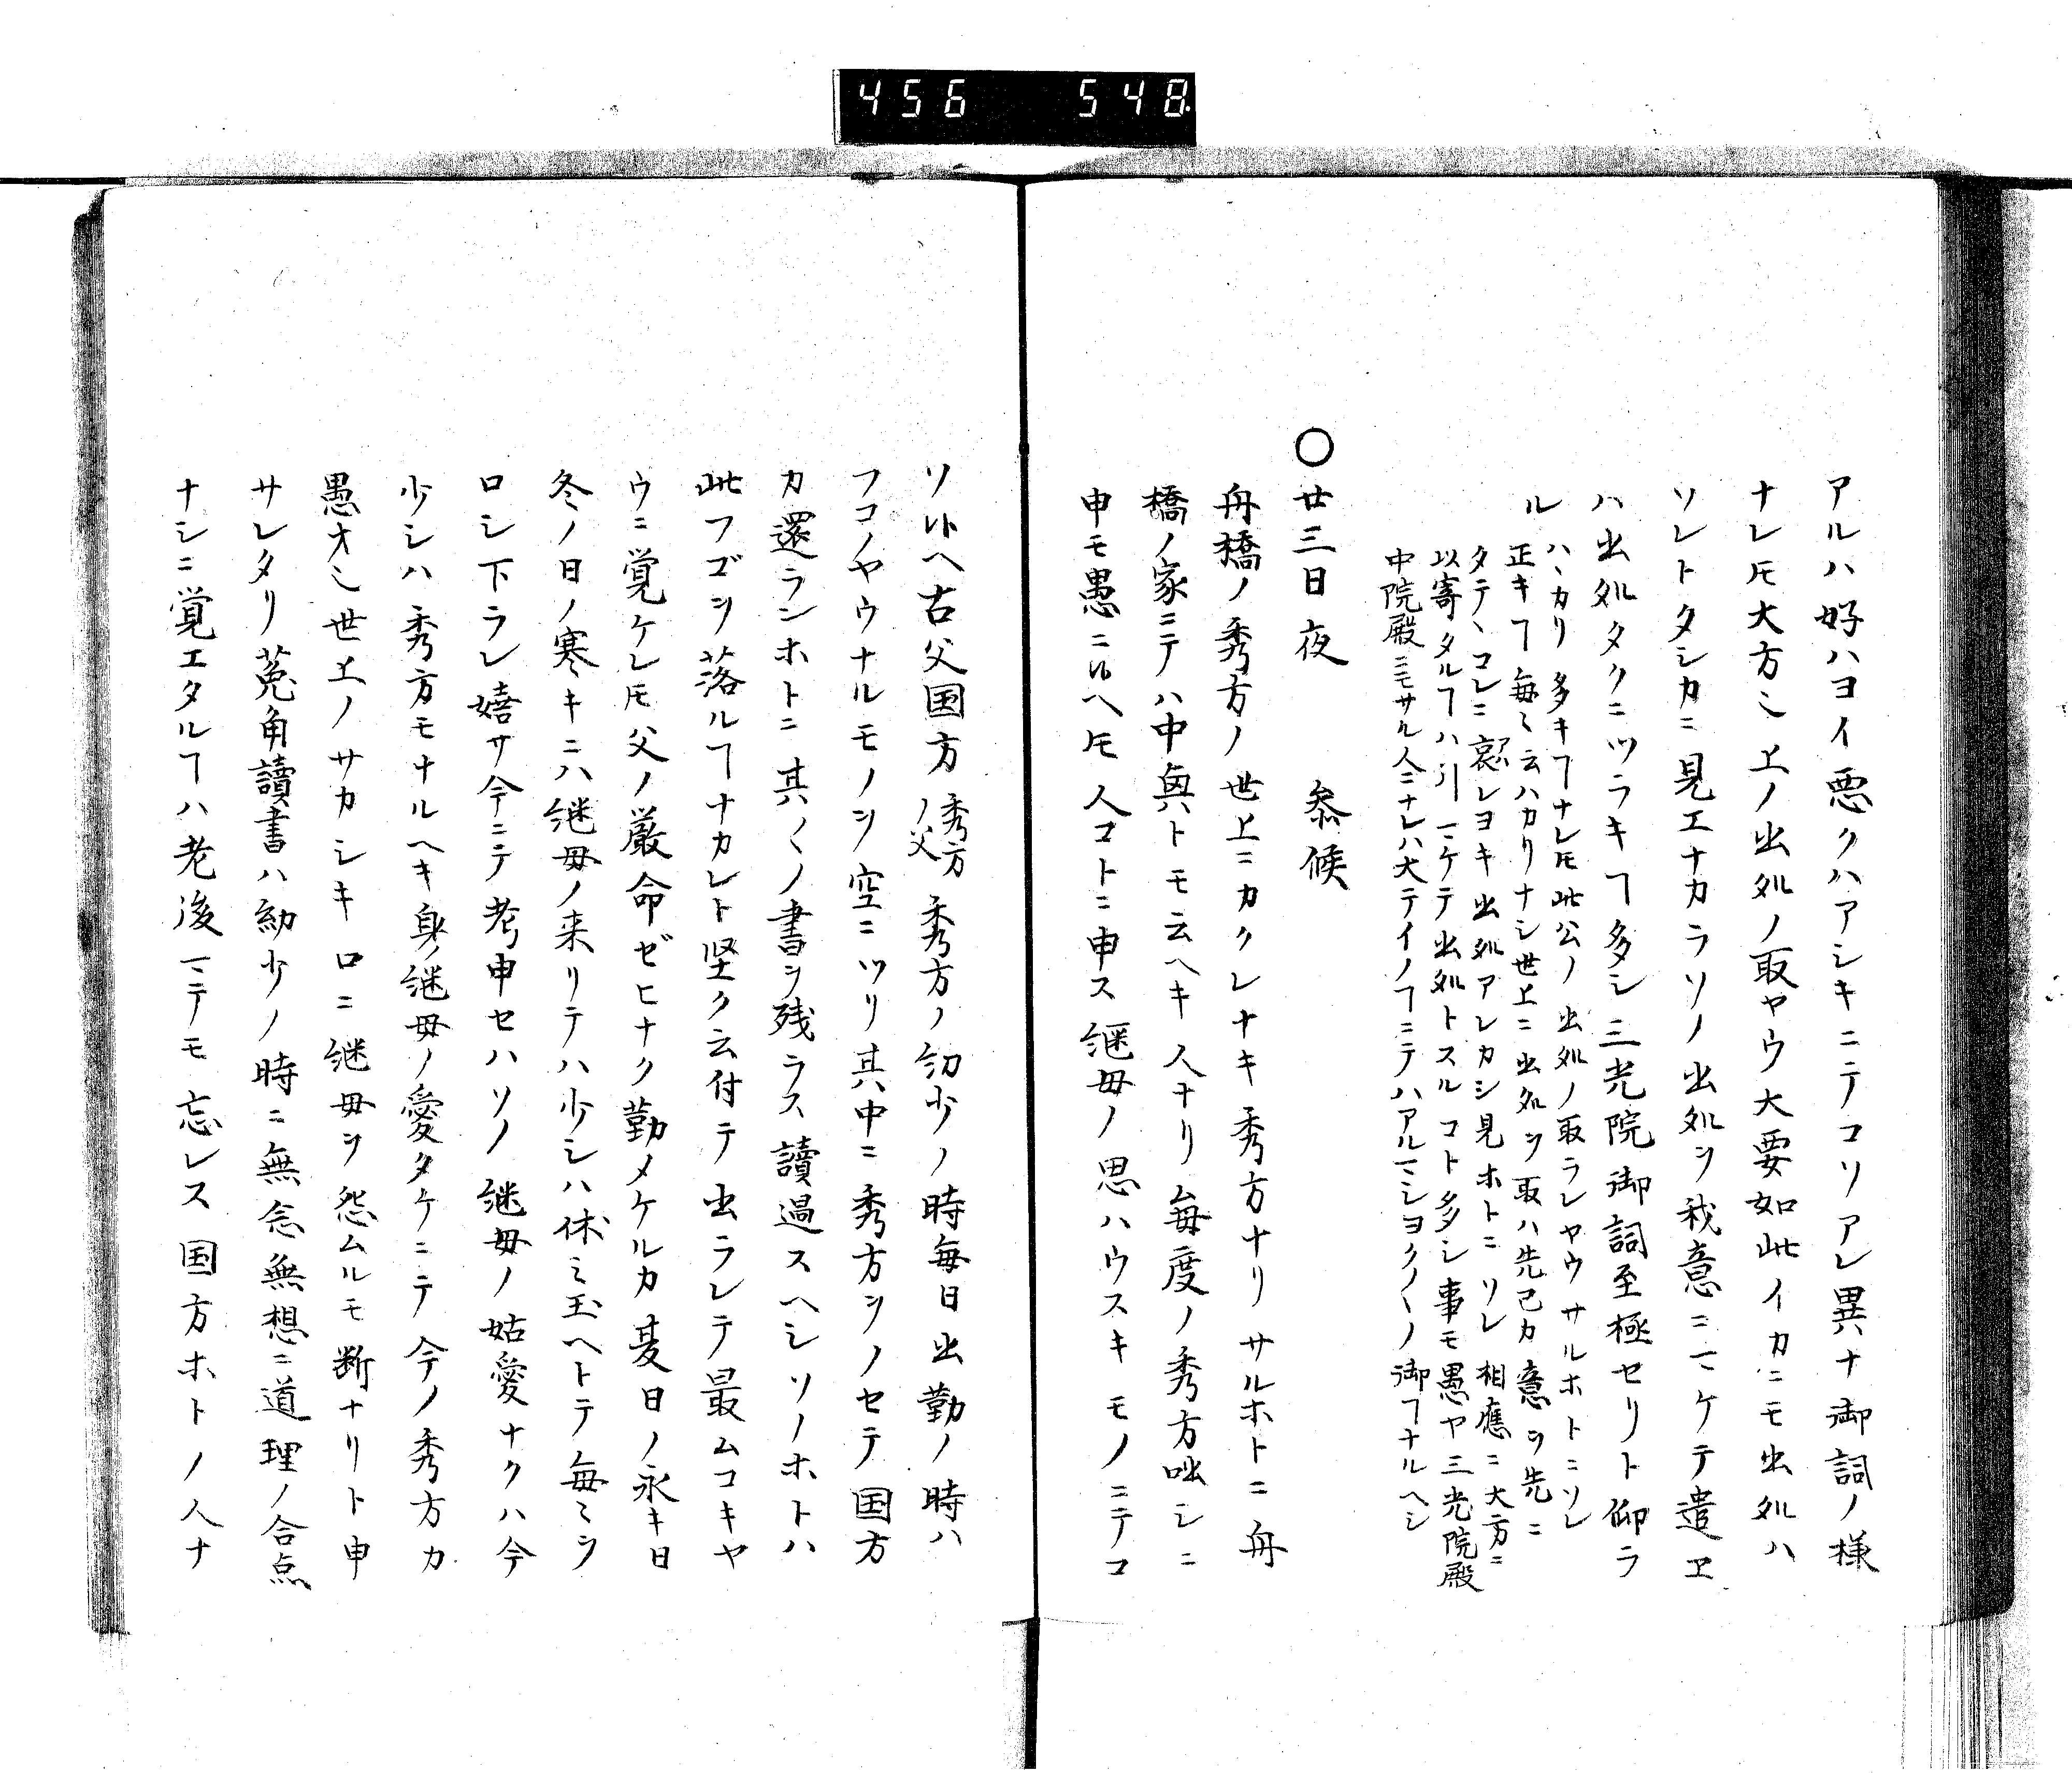 456 548
アルハ好ハヨイ悪クハアシキニテコリアレ異ナ御詞ノ様
ナレ𪜈大方〻上ノ出処ノ取ヤウ大要如此イカニモ出処ハ
ソレトタシカニ見エナカラソノ出処ヲ我意ニマケテ遣ヱ
ハ出処タクニツラキヿ多シ三光院御詞至極セリト仰ラ
ル
ハヽカリ多キヿナレ𪜈此公ノ出処ノ取ラレヤウサルホトニソレ
正キヿ毎〻云ハカリナシ世上ニ出処ヲ取ハ先己カ意ヲ先ニ
タテヽコレニ哀レヨキ出処アレカシ見ホトニソレ相應ニ大方ニ
以寄タルヿハ引マケテ出処トスルコト多シ事モ愚ヤ三光院殿
中院殿ニモサル人ニナレハ大テイノヿニテハアルマシヨク〳〵ノ御ヿナルヘシ
〇廿三日夜 参候
舟橋ノ秀方ノ世上ニカクレナキ秀方ナリサルホトニ舟
橋ノ家ニテハ中興トモ云ヘキ人ナリ毎度ノ秀方咄シニ
申モ愚ニ候ヘ𪜈人コトニ申ス継母ノ思ハウスキモノニテコ
ソ候ヘ古父国方秀方ノ父秀方ノ幼少ノ時毎日出勤ノ時ハ
フコノヤウナルモノヲ空ニツリ其中ニ秀方ヲノセテ国方
カ還ランホトニ其〳〵ノ書ヲ残ラス讀過スヘシソノホトハ
此フゴヲ落ルヿナカレト堅ク云付テ出ラレテ最ムコキヤ
ウニ覚ケレ𪜈父ノ厳命ゼヒナク勤メケルカ夏日ノ永キ日
冬ノ日ノ寒キニハ継母ノ来リテハ少シハ休ミ玉ヘトテ毎〻ヲ
ロシ下ラレ嬉サ今ニテ考申セハソノ継母ノ姑愛ナクハ今
少シハ秀方モナルヘキ身ノ継母ノ愛タケニテ今ノ秀方カ
愚オ〻世上ノサカシキロニ継母ヲ怨ムルモ断ナリト申
サレタリ菟角讀書ハ幼少ノ時ニ無念無想ニ道理ノ合点
ナシニ覚エタルヿハ老後マテモ忘レス国方ホトノ人ナ